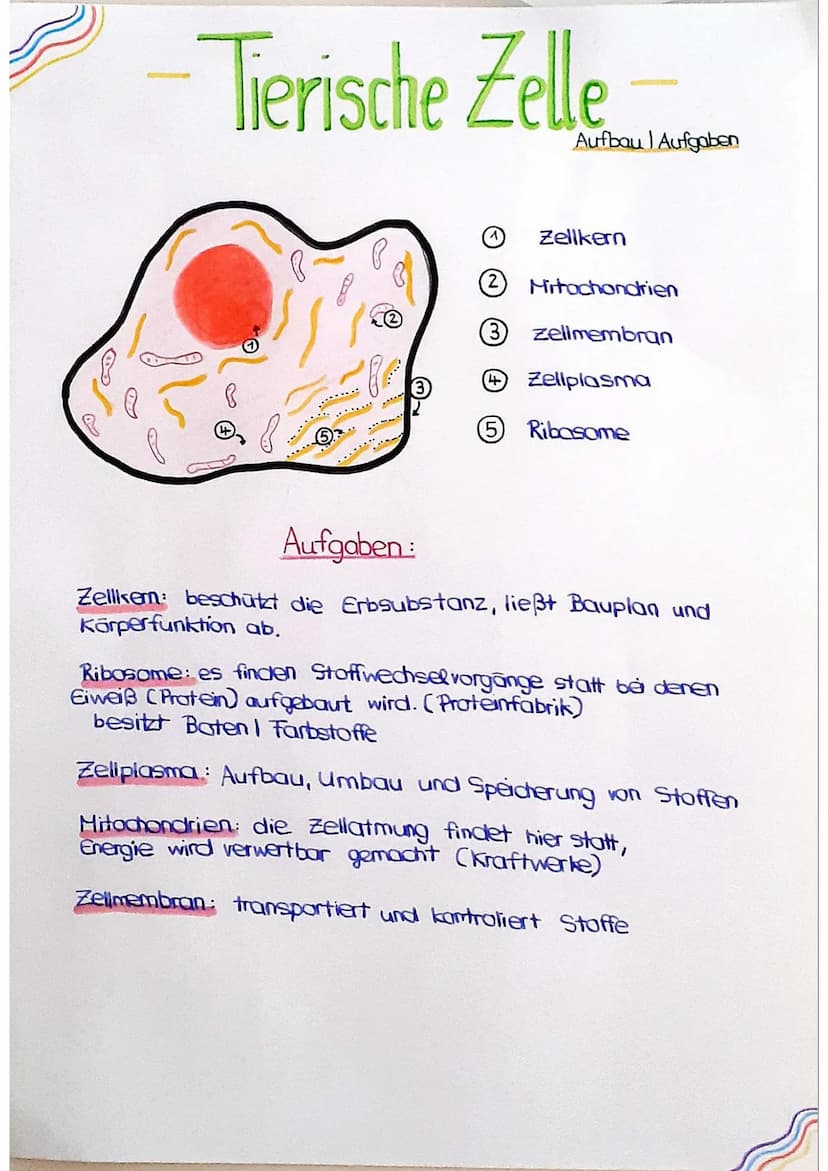 - Tierische Zelle -
Aufbau | Aufgaben
① Zellkern
② Mitochondrien
③ Zellmembran
④ Zellplasma
⑤ Ribosome
1
2
3
4
5
Aufgaben:
Zellkern: beschützt die Erbsubstanz, ließt Bauplan und
Körperfunktion ab.
Ribosome: es finden Stoffwechselvorgänge statt bei denen
Eiweiß (Protein) aufgebaut wird. (Proteinfabrik)
besitzt Boten | Farbstoffe
Zellplasma: Aufbau, Umbau und Speicherung von Stoffen
Mitochondrien: die Zellatmung findet hier statt,
Energie wird verwertbar gemacht (Kraftwerke)
Zellmembran: transportiert und kontroliert Stoffe